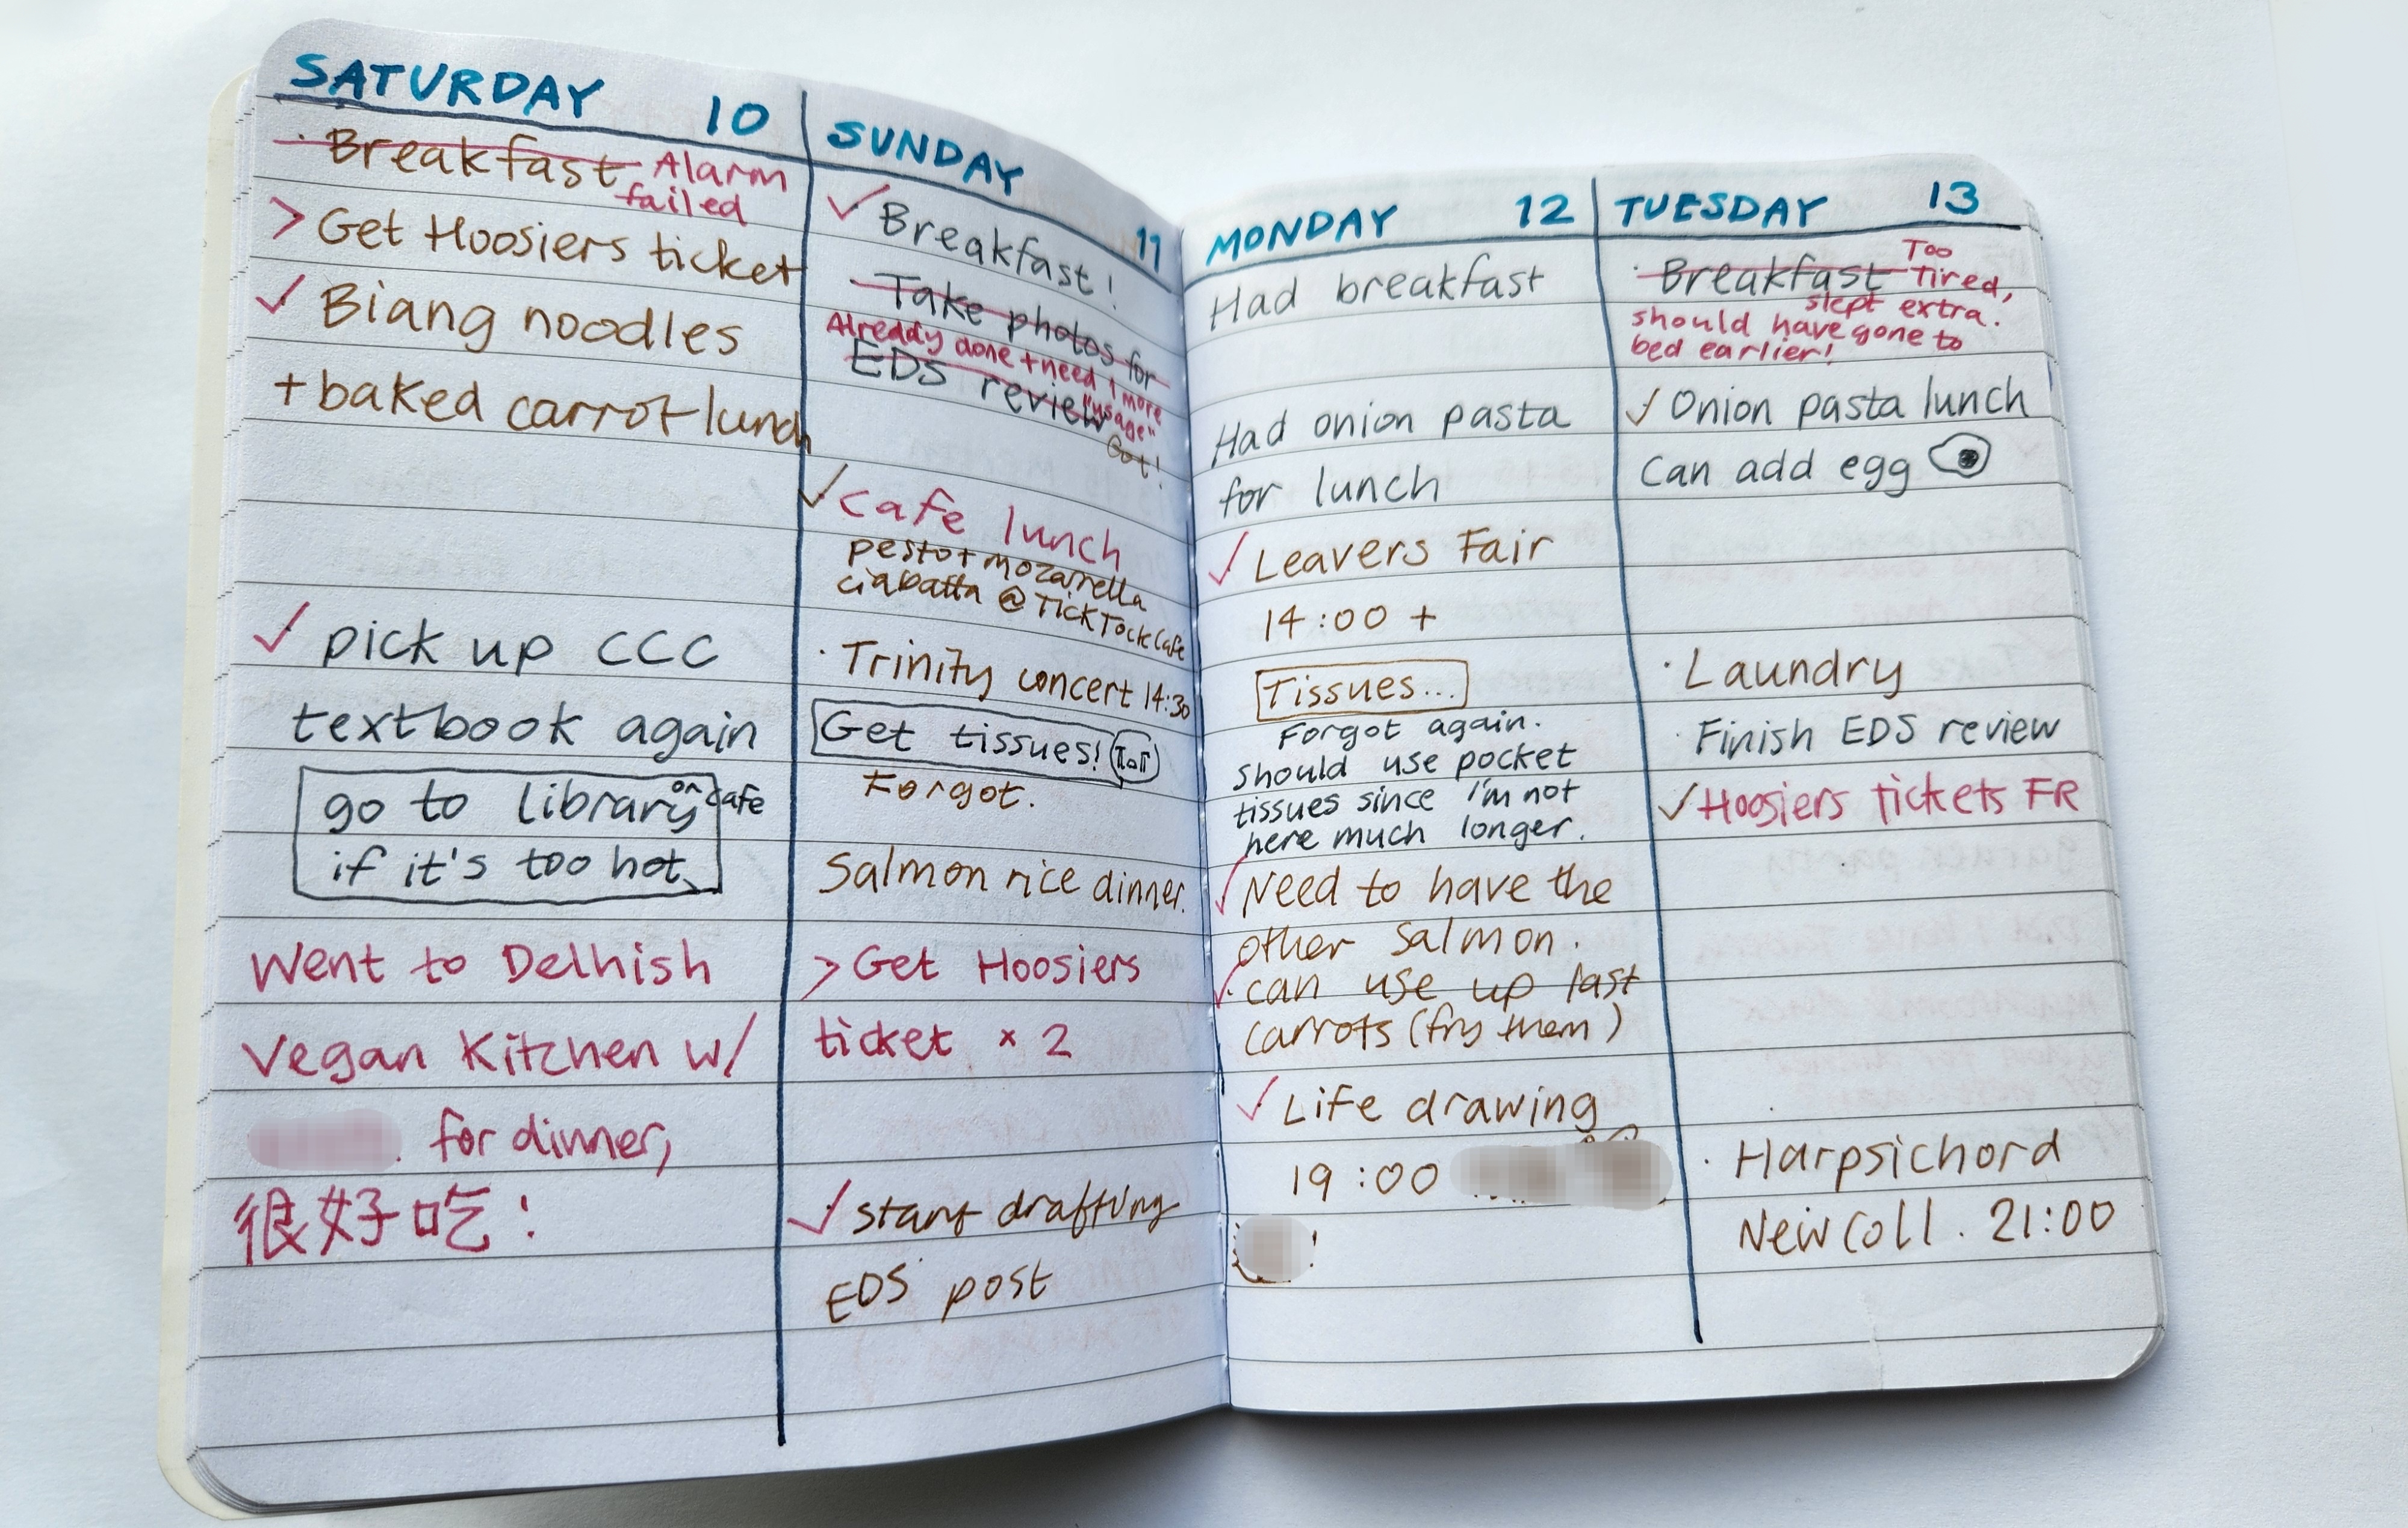 SATURDAY 10
· Breakfast Alarm
failed
> Get Hoosiers ticket
✓ Biang noodles
+ baked carrot lunch
✓ pick up CCC
textbook again
go to library or cafe
if it's too hot
Went to Delhish
Vegan Kitchen w/
for dinner,
很好吃!
SUNDAY 11
✓ Breakfast!
Take photos for
Already done + need 1 more
EDS review "usage"
Got!
✓ Cafe lunch
pesto + mozarella
ciabatta @ Tick Tock Cafe
· Trinity concert 14:30
Get tissues!
Forgot.
Salmon rice dinner.
> Get Hoosiers
ticket × 2
✓ start drafting
EDS post
MONDAY 12
Had breakfast
Had onion pasta
for lunch
✓ Leavers Fair
14:00 +
Tissues...
Forgot again.
Should use pocket
tissues since I'm not
here much longer.
✓ Need to have the
other salmon.
✓ can use up last
carrots (fry them)
✓ Life drawing
19:00
!
TUESDAY 13
· Breakfast Too
Tired,
slept extra.
should have gone to
bed earlier!
✓ Onion pasta lunch
Can add egg
· Laundry
· Finish EDS review
✓ Hoosiers tickets FR
· Harpsichord
New Coll. 21:00